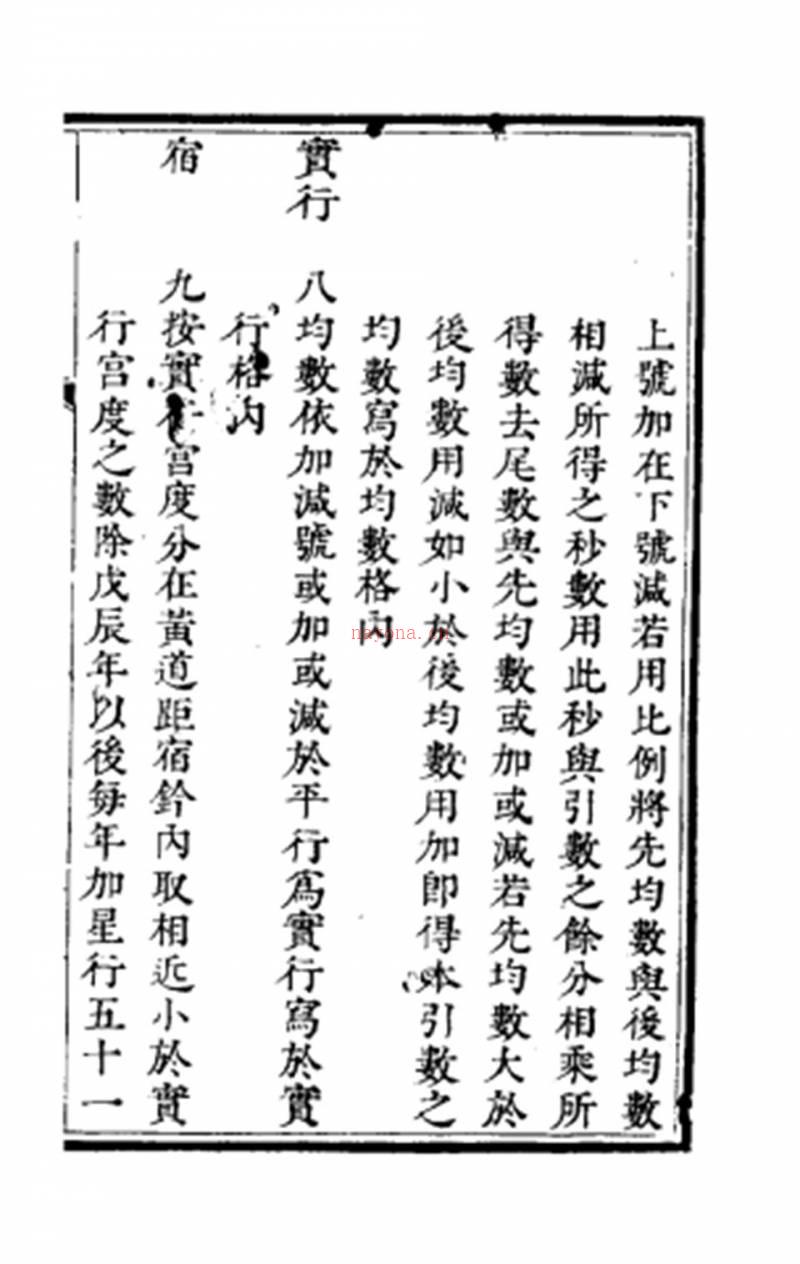 上號加在下號減若用比例將先均數與後均數
相減所得之秒數用此秒與引數之餘分相乘所
得數去尾數與先均數或加或減若先均數大於
後均數用減如小於後均數用加即得本引數之
均數寫於均數格內
實行 八均數依加減號或加或減於平行爲實行寫於實
行格內
宿 九按實行宮度分在黃道距宿鈐內取相近小於實
行宮度之數除戊辰年以後每年加星行五十一
nayona.cn